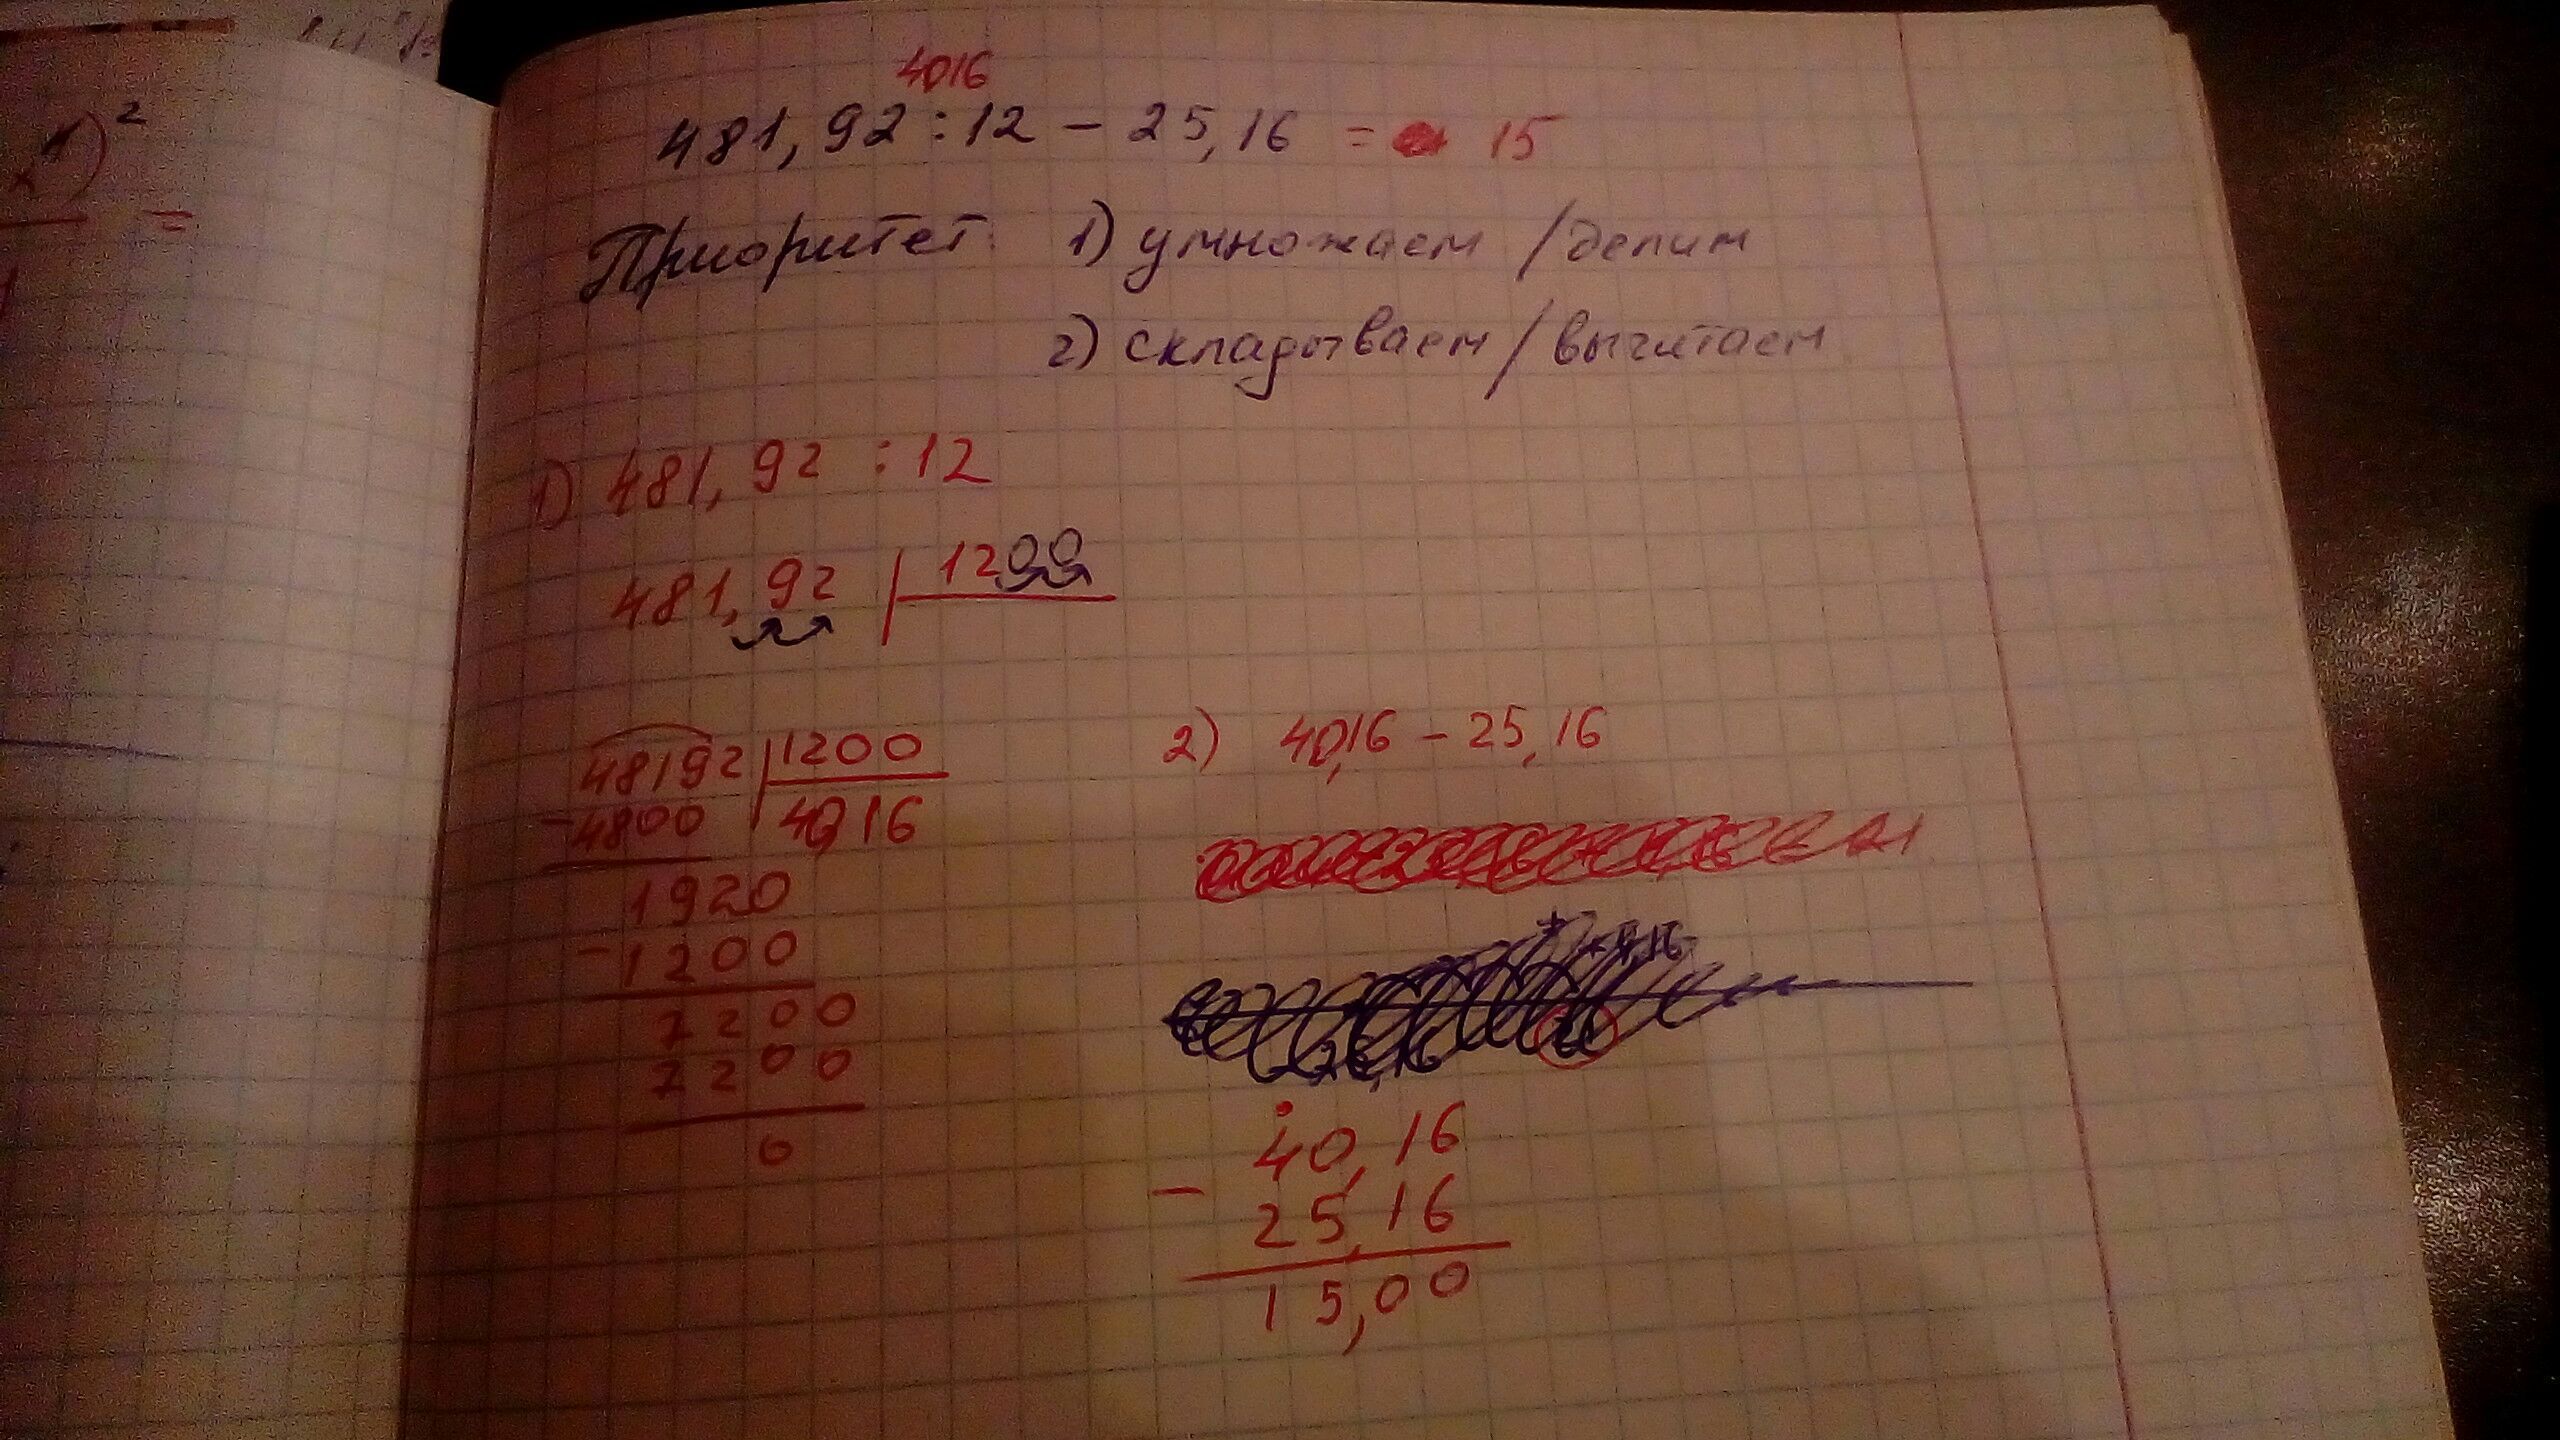 x 1)²
=
40,16
481,92 : 12 − 25,16 = 15
Приоритет: 1) умножаем / делим
2) складываем / вычитаем
1) 481,92 : 12
481,92 | 1200
48192 | 1200
− 4800 | 40,16
1920
− 1200
7200
7200
0
2) 40,16 − 25,16
40,16
− 25,16
15,00